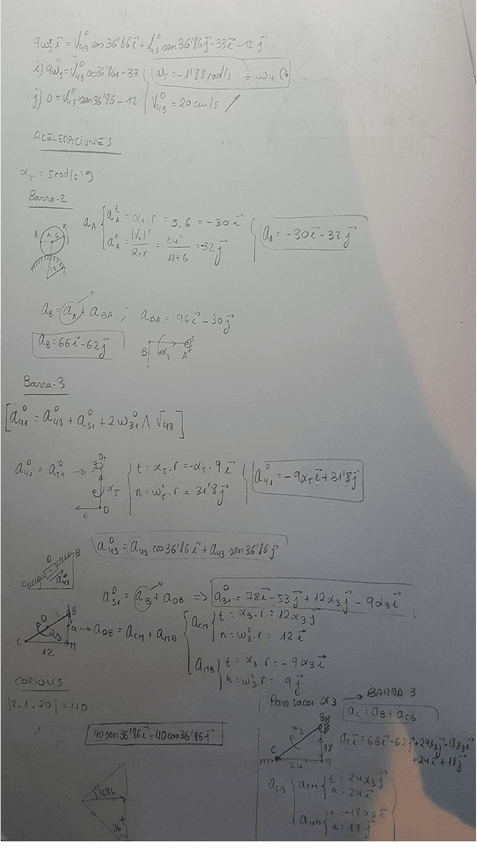 9ω₅ i = V₄₃ᴰ cos 36'86 i + V₄₃ᴰ sen 36'86 j - 33 i - 12 j
i) 9ω₅ = V₄₃ᴰ cos 36'86 - 33
ω₅ = -1'88 rad/s = ω₄
j) 0 = V₄₃ᴰ sen 36'86 - 12
V₄₃ᴰ = 20 cm/s
ACELERACIONES
Barra-2
a_A
t = α₂.r = 5.6 = -30 i
a_A = -30 i - 32 j
24²
12+6
= -32 j
a_B = a_A + a_BA ; a_BA = 96 i - 30 j
a_B = 66 i - 62 j
B α₂ A
Barra-3
[a₄₁ᴰ = a₄₃ᴰ + a₃₁ᴰ + 2ω₃₁ ∧ V₄₃]
a₄₁ᴰ = a₅₁ᴰ → O₅
t = α₅.r = -α₅.9 i
n = ω₅².r = 31'8 j
a₄₁ᴰ = -9α₅ i + 31'8 j
α₅
t D
a₄₃ᴰ = a₄₃ cos 36'86 i + a₄₃ sen 36'86 j
D B
C a₄₃ᴰ
a₃₁ᴰ = a_B + a_DB ⇒ a₃₁ᴰ = 78 i - 53 j + 12α₃ j - 9α₃ i
a_DB = a_DM + a_MB
t = α₃.r = 12α₃ j
n = ω₃².r = 12 i
12
a_MB
t = α₃.r = -9α₃ i
n = ω₃².r = 9 j
CORIOLIS
|2.1.20| = 40
40 sen 36'86 i - 40 cos 36'86 j
36'86
36
Para sacar α₃ → BARRA 3
a_C = a_B + a_CB
a_C i = 66 i - 62 j + 24α₃ j - 18α₃ i
+ 24 i + 18 j
C 24 18
a_CB
t = 24α₃ j
n = 24 i
a_MB
t = -18α₃ i
n = 18 j